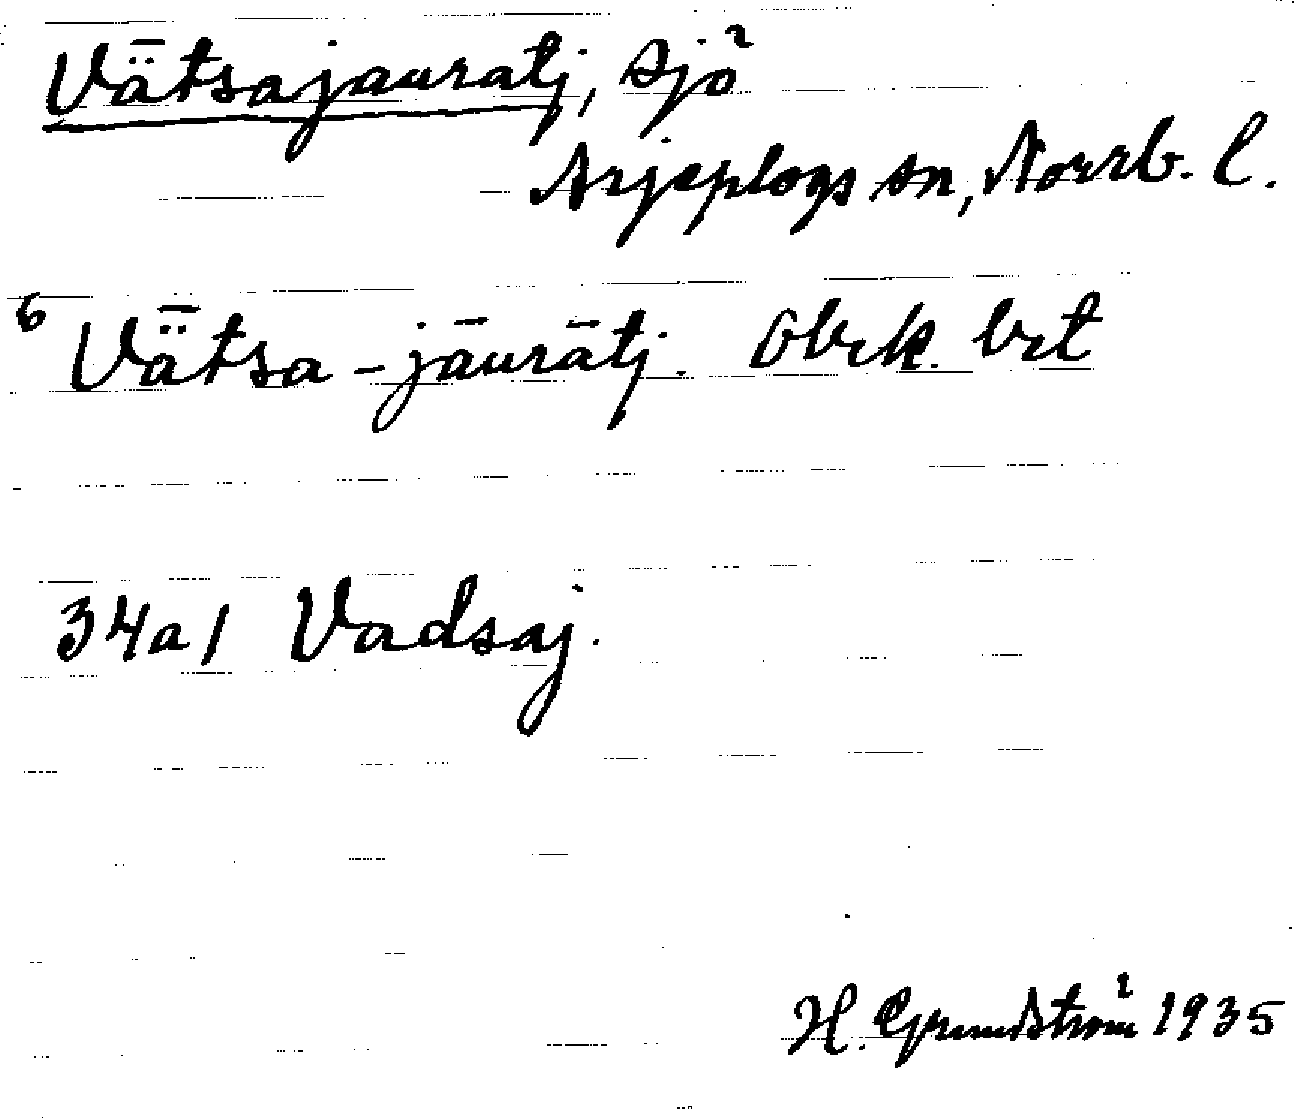 Vǟtsajauratj, sjö
Arjeplogs sn, Norrb. l.
6 Vǟtsa-jāurātj. Obek. bet
34a1 Vadsaj.
H. Grundström 1935